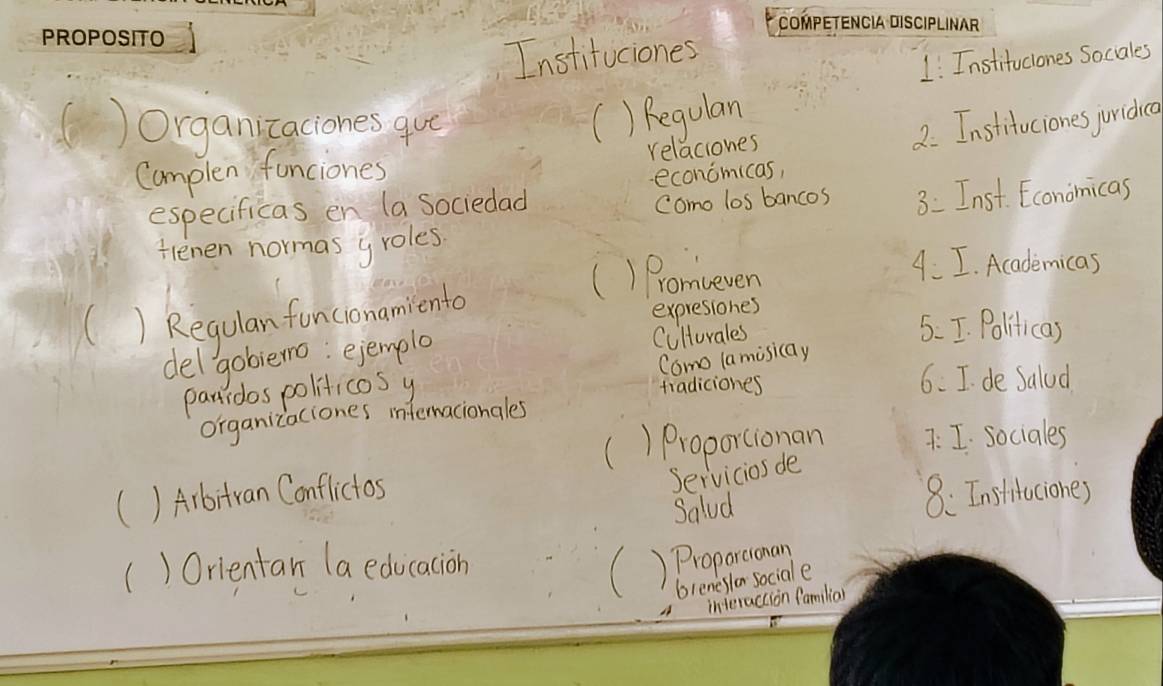 PROPOSITO
COMPETENCIA DISCIPLINAR
Instituciones
( ) Organizaciones que
Complen funciones
especificas en la Sociedad
tienen normas y roles.
( ) Regulan funcionamiento
del gobierno : ejemplo
partidos politicos y
organizaciones internacionales
( ) Arbitran Conflictos
( ) Orientan la educación
( ) Regulan
relaciones
económicas,
como los bancos
( ) Promueven
expresiones
Culturales
Como la música y
tradiciones
( ) Proporcionan
Servicios de
Salud
( ) Proporcionan
bienestar social e
interacción familiar
1: Instituciones Sociales
2= Instituciones juridica
3= Inst. Económicas
4= I. Académicas
5= I. Políticas
6= I. de Salud
7: I. Sociales
8: Instituciones